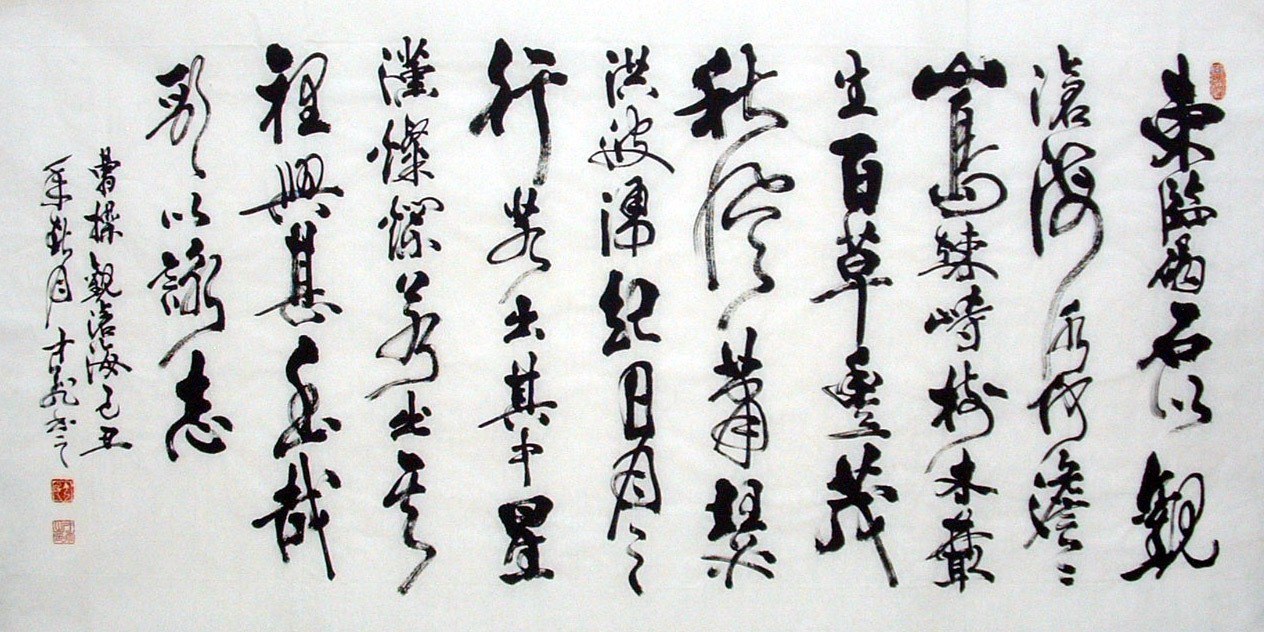 東臨碣石以觀
滄海水何澹〻
山島竦峙樹木叢
生百草豐茂
秋風蕭瑟
洪波涌起日月之
行若出其中星
漢燦爛若出其
裡興甚至哉
歌以詠志
曹操觀滄海己丑
年秋月書之